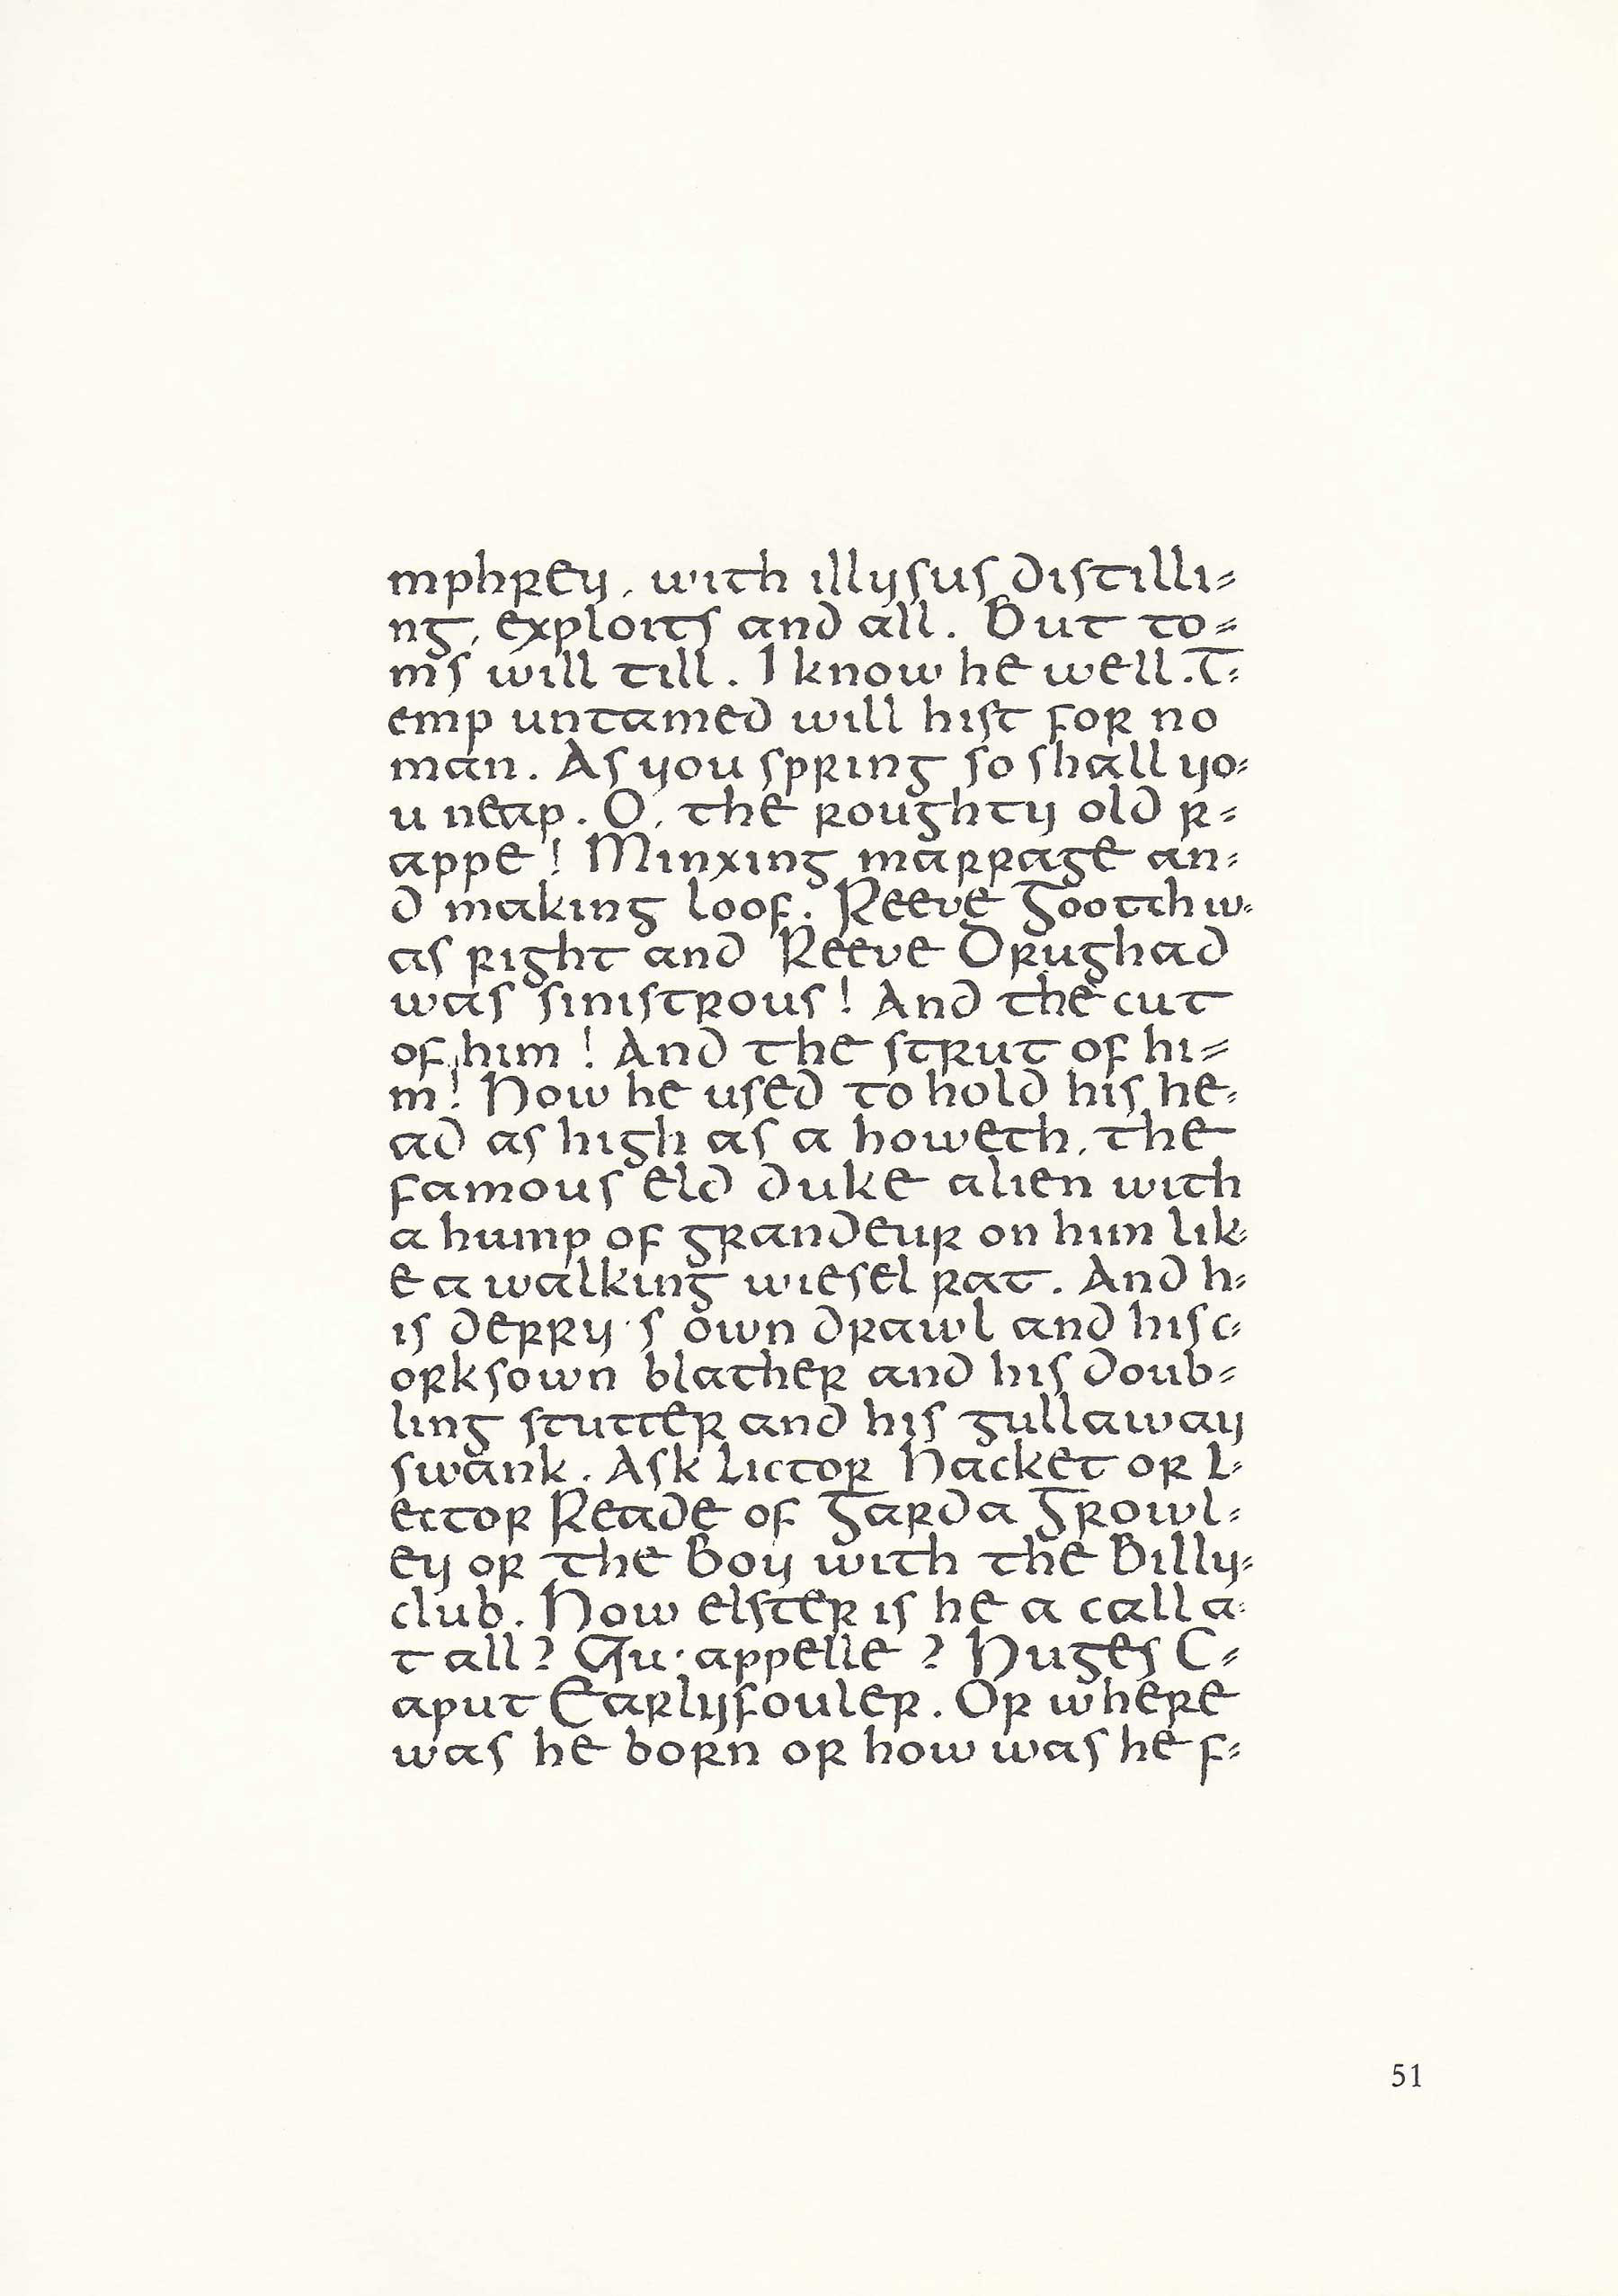 mphrey, with illysus distilli=
ng, exploits and all. But to=
ms will till. I know he well. T=
emp untamed will hist for no
man. As you spring so shall yo=
u neap. O, the roughty old r=
appe! Minxing marrage an=
d making loof. Reeve Gootth w=
as right and Reeve Drughad
was sinistrous! And the cut
of him! And the strut of hi=
m! How he used to hold his he=
ad as high as a howeth, the
famous eld duke alien with
a hump of grandeur on him lik=
e a walking wiesel rat. And h=
is derry's own drawl and his c=
orksown blather and his doub=
ling stutter and his gullaway
swank. Ask Lictor Hacket or L=
ector Reade of Garda Growl=
ey or the Boy with the Billy=
club. How elster is he a call a=
t all? Qu'appelle? Huges C=
aput Earlyfouler. Or where
was he born or how was he f=
51